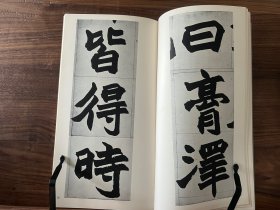 曰膏澤
皆得時